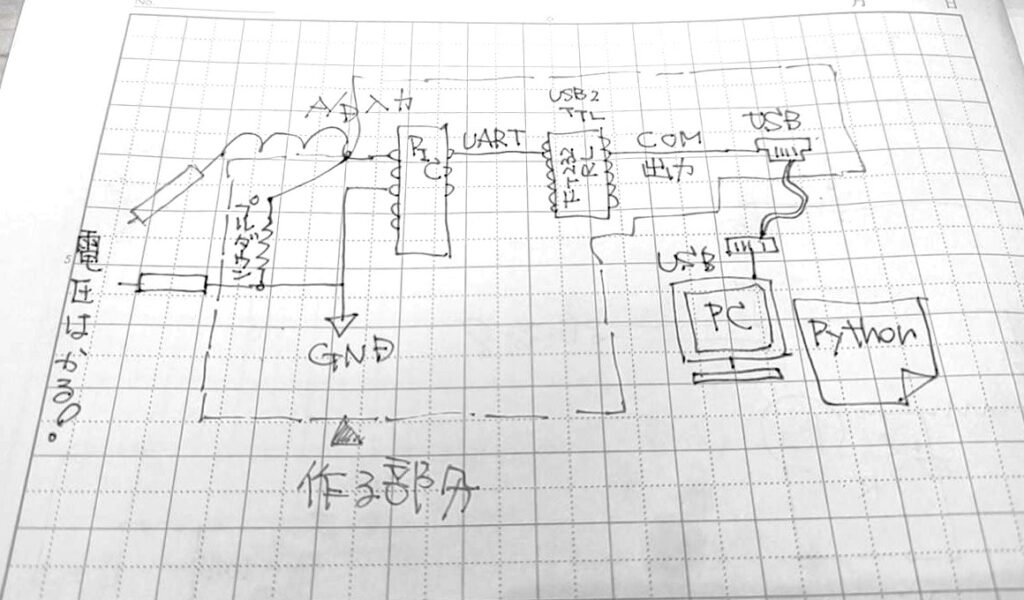 No.
月 日
A/D入力
PIC
UART
USB2
TTL
FT232
RL
COM
出力
USB
プルダウン
電圧はかるの。
GND
USB
PC
Python
作る部分